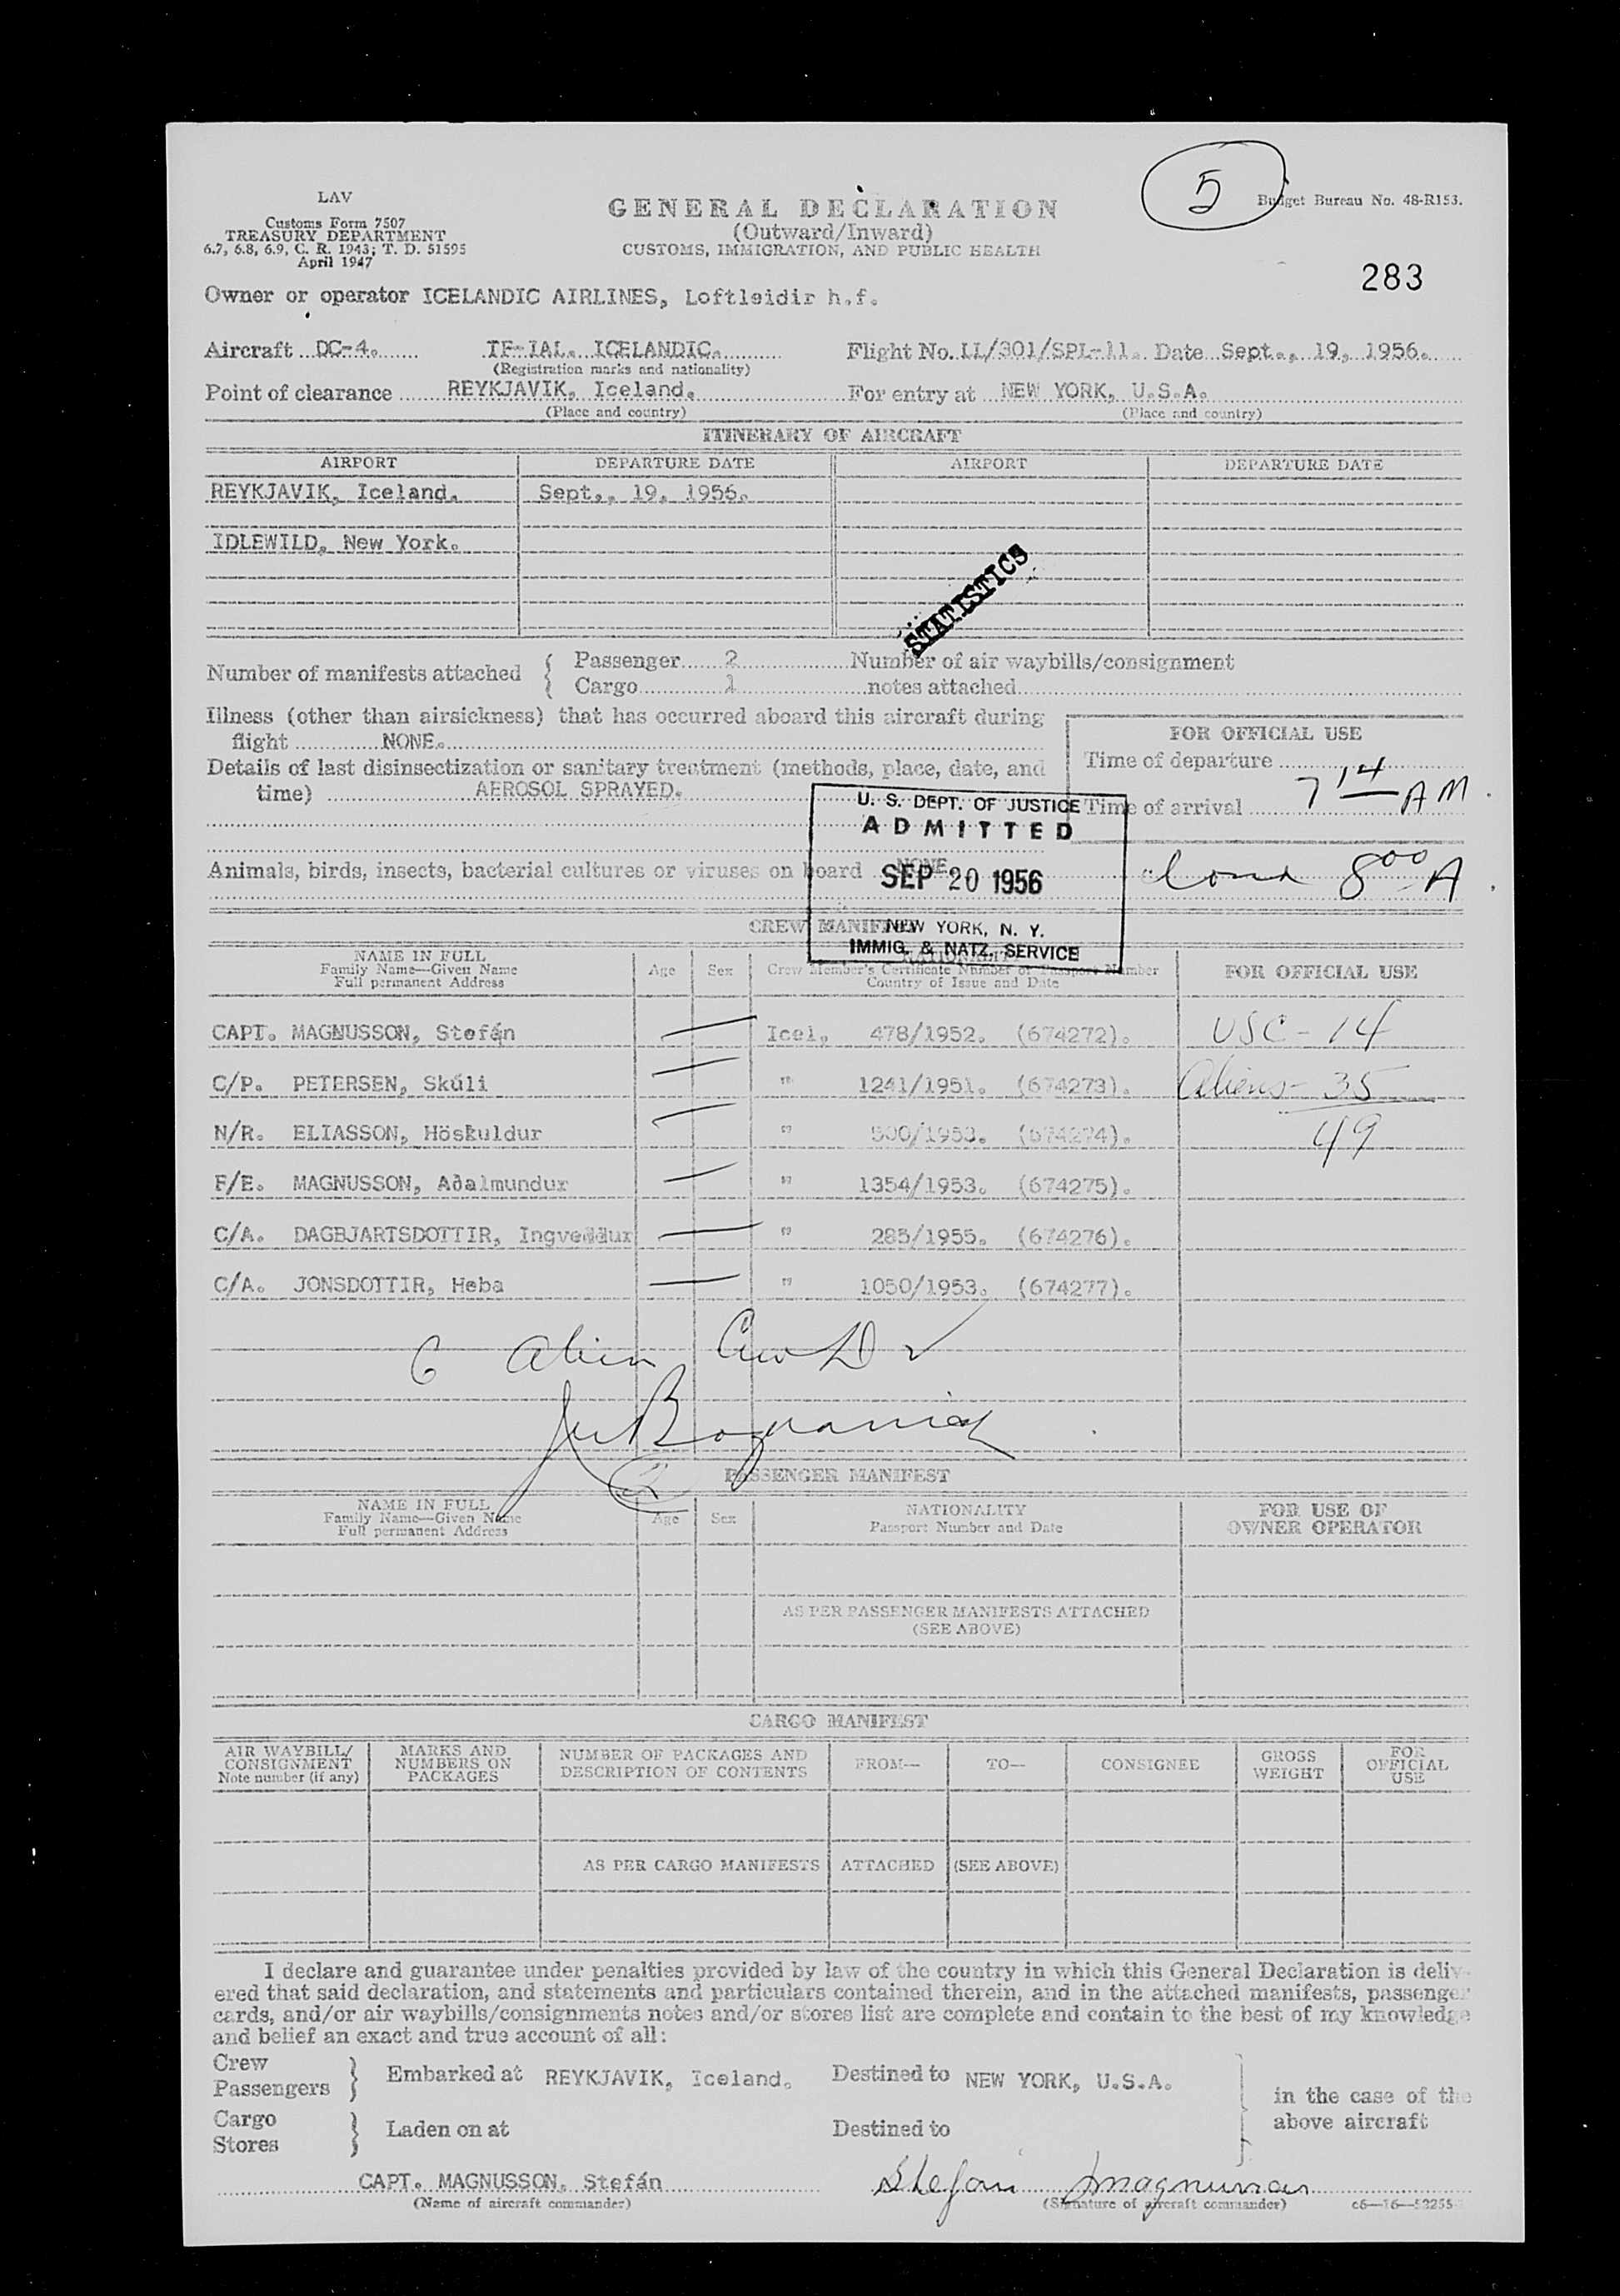 LAV
Customs Form 7507
TREASURY DEPARTMENT
6.7, 6.8, 6.9, C. R. 1943; T. D. 51595
April 1947
GENERAL DECLARATION
(Outward/Inward)
CUSTOMS, IMMIGRATION, AND PUBLIC HEALTH
5
Budget Bureau No. 48-R153.
283
Owner or operator ICELANDIC AIRLINES, Loftleidir h.f.
Aircraft DC-4. TF-IAL. ICELANDIC. Flight No. LL/301/SPL-11. Date Sept., 19, 1956.
(Registration marks and nationality)
Point of clearance REYKJAVIK, Iceland. For entry at NEW YORK, U.S.A.
(Place and country) (Place and country)
ITINERARY OF AIRCRAFT
AIRPORT DEPARTURE DATE AIRPORT DEPARTURE DATE
REYKJAVIK, Iceland. Sept., 19, 1956.
IDLEWILD, New York.
STATISTICS
Number of manifests attached { Passenger 2 Number of air waybills/consignment
Cargo 1 notes attached
Illness (other than airsickness) that has occurred aboard this aircraft during
flight NONE.
FOR OFFICIAL USE
Time of departure
Time of arrival 7 14 AM
Details of last disinsectization or sanitary treatment (methods, place, date, and
time) AEROSOL SPRAYED.
U. S. DEPT. OF JUSTICE
ADMITTED
SEP 20 1956
NEW YORK, N. Y.
IMMIG. & NATZ. SERVICE
Animals, birds, insects, bacterial cultures or viruses on board NONE
8 00 A
CREW MANIFEST
NAME IN FULL
Family Name—Given Name
Full permanent Address
Age Sex
NATIONALITY
Crew Member's Certificate Number or Passport Number
Country of Issue and Date
FOR OFFICIAL USE
CAPT. MAGNUSSON, Stefán Icel. 478/1952. (674272). USC - 14
C/P. PETERSEN, Skúli " 1241/1951. (674273). Aliens - 35
N/R. ELIASSON, Höskuldur " 500/1953. (674274). 49
F/E. MAGNUSSON, Aðalmundur " 1354/1953. (674275).
C/A. DAGBJARTSDOTTIR, Ingveddur " 285/1955. (674276).
C/A. JONSDOTTIR, Heba " 1050/1953. (674277).
6 Alien Crew
2
PASSENGER MANIFEST
NAME IN FULL
Family Name—Given Name
Full permanent Address
Age Sex
NATIONALITY
Passport Number and Date
FOR USE OF
OWNER OPERATOR
AS PER PASSENGER MANIFESTS ATTACHED
(SEE ABOVE)
CARGO MANIFEST
AIR WAYBILL/
CONSIGNMENT
Note number (if any)
MARKS AND
NUMBERS ON
PACKAGES
NUMBER OF PACKAGES AND
DESCRIPTION OF CONTENTS
FROM— TO— CONSIGNEE
GROSS
WEIGHT
FOR
OFFICIAL
USE
AS PER CARGO MANIFESTS ATTACHED (SEE ABOVE)
I declare and guarantee under penalties provided by law of the country in which this General Declaration is deliv-
ered that said declaration, and statements and particulars contained therein, and in the attached manifests, passenger
cards, and/or air waybills/consignments notes and/or stores list are complete and contain to the best of my knowledge
and belief an exact and true account of all:
Crew
Passengers } Embarked at REYKJAVIK, Iceland. Destined to NEW YORK, U.S.A.
Cargo
Stores } Laden on at Destined to
in the case of the
above aircraft
CAPT. MAGNUSSON, Stefán Stefan Magnusson
(Name of aircraft commander) (Signature of aircraft commander)